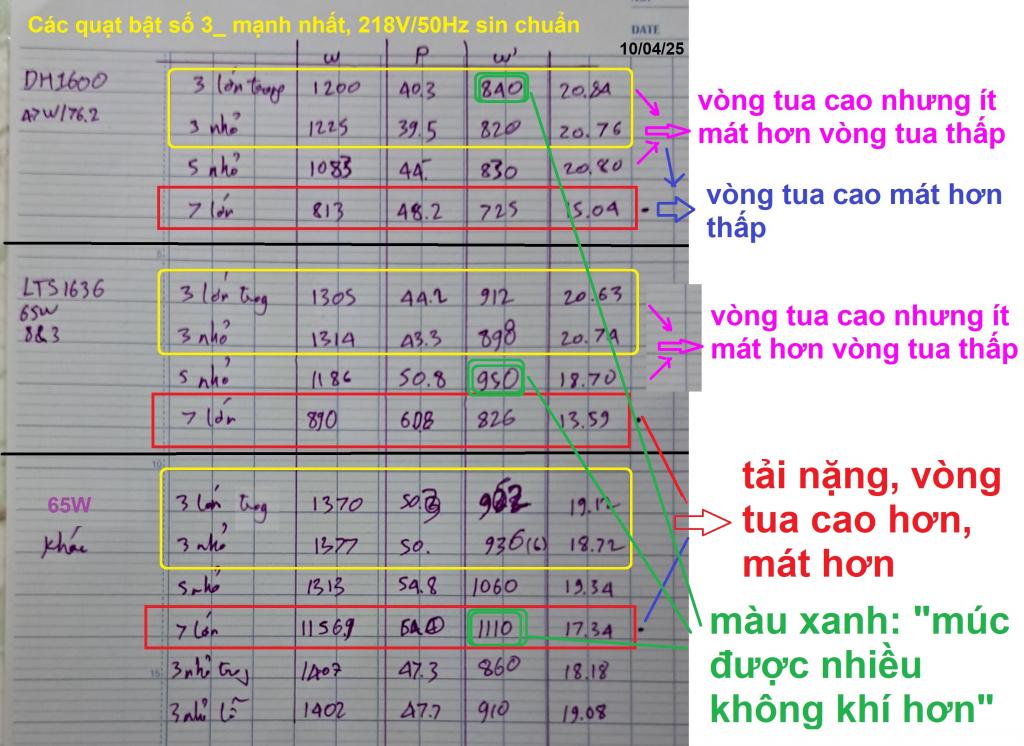 Các quạt bật số 3_ mạnh nhất, 218V/50Hz sin chuẩn
DATE
10/04/25
ω P ω'
DH1600 3 lớn trong 1200 40.3 840 20.84
47W/76.2 3 nhỏ 1225 39.5 820 20.76
5 nhỏ 1083 44. 830 20.80
7 lớn 813 48.2 725 15.04
vòng tua cao nhưng ít
mát hơn vòng tua thấp
vòng tua cao mát hơn
thấp
5
LTS1636 3 lớn trong 1305 44.2 912 20.63
65W 3 nhỏ 1314 43.3 898 20.74
8&3 5 nhỏ 1186 50.8 950 18.70
7 lớn 890 60.8 826 13.59
vòng tua cao nhưng ít
mát hơn vòng tua thấp
10
65W 3 lớn trong 1370 962 19.12
khác 3 nhỏ 1377 50. 936(6) 18.72
5 nhỏ 1313 54.8 1060 19.34
7 lớn 1110 17.34
15 3 nhỏ trong 1407 47.3 860 18.18
3 nhỏ 1402 47.7 910 19.08
tải nặng, vòng
tua cao hơn,
mát hơn
màu xanh: "múc
được nhiều
không khí hơn"